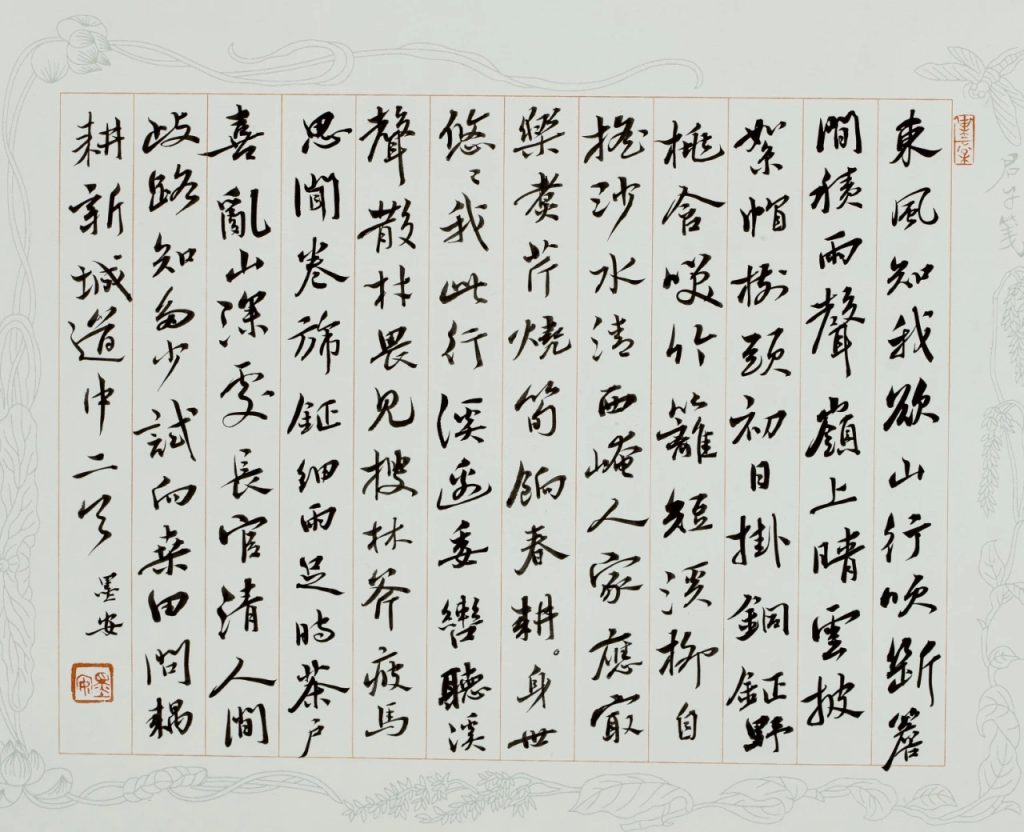 君子箋
東風知我欲山行吹斷簷
間積雨聲嶺上晴雲披
絮帽樹頭初日掛銅鉦野
桃含咲竹籬短溪柳自
搖沙水清西崦人家應最
樂煑芹燒筍餉春耕。身世
悠〻我此行溪邊委轡聽溪
聲散材畏見搜林斧疲馬
思聞卷旆鉦細雨足時茶戶
喜亂山深處長官清人間
歧路知多少試向桑田問耦
耕新城道中二首
墨安
墨安